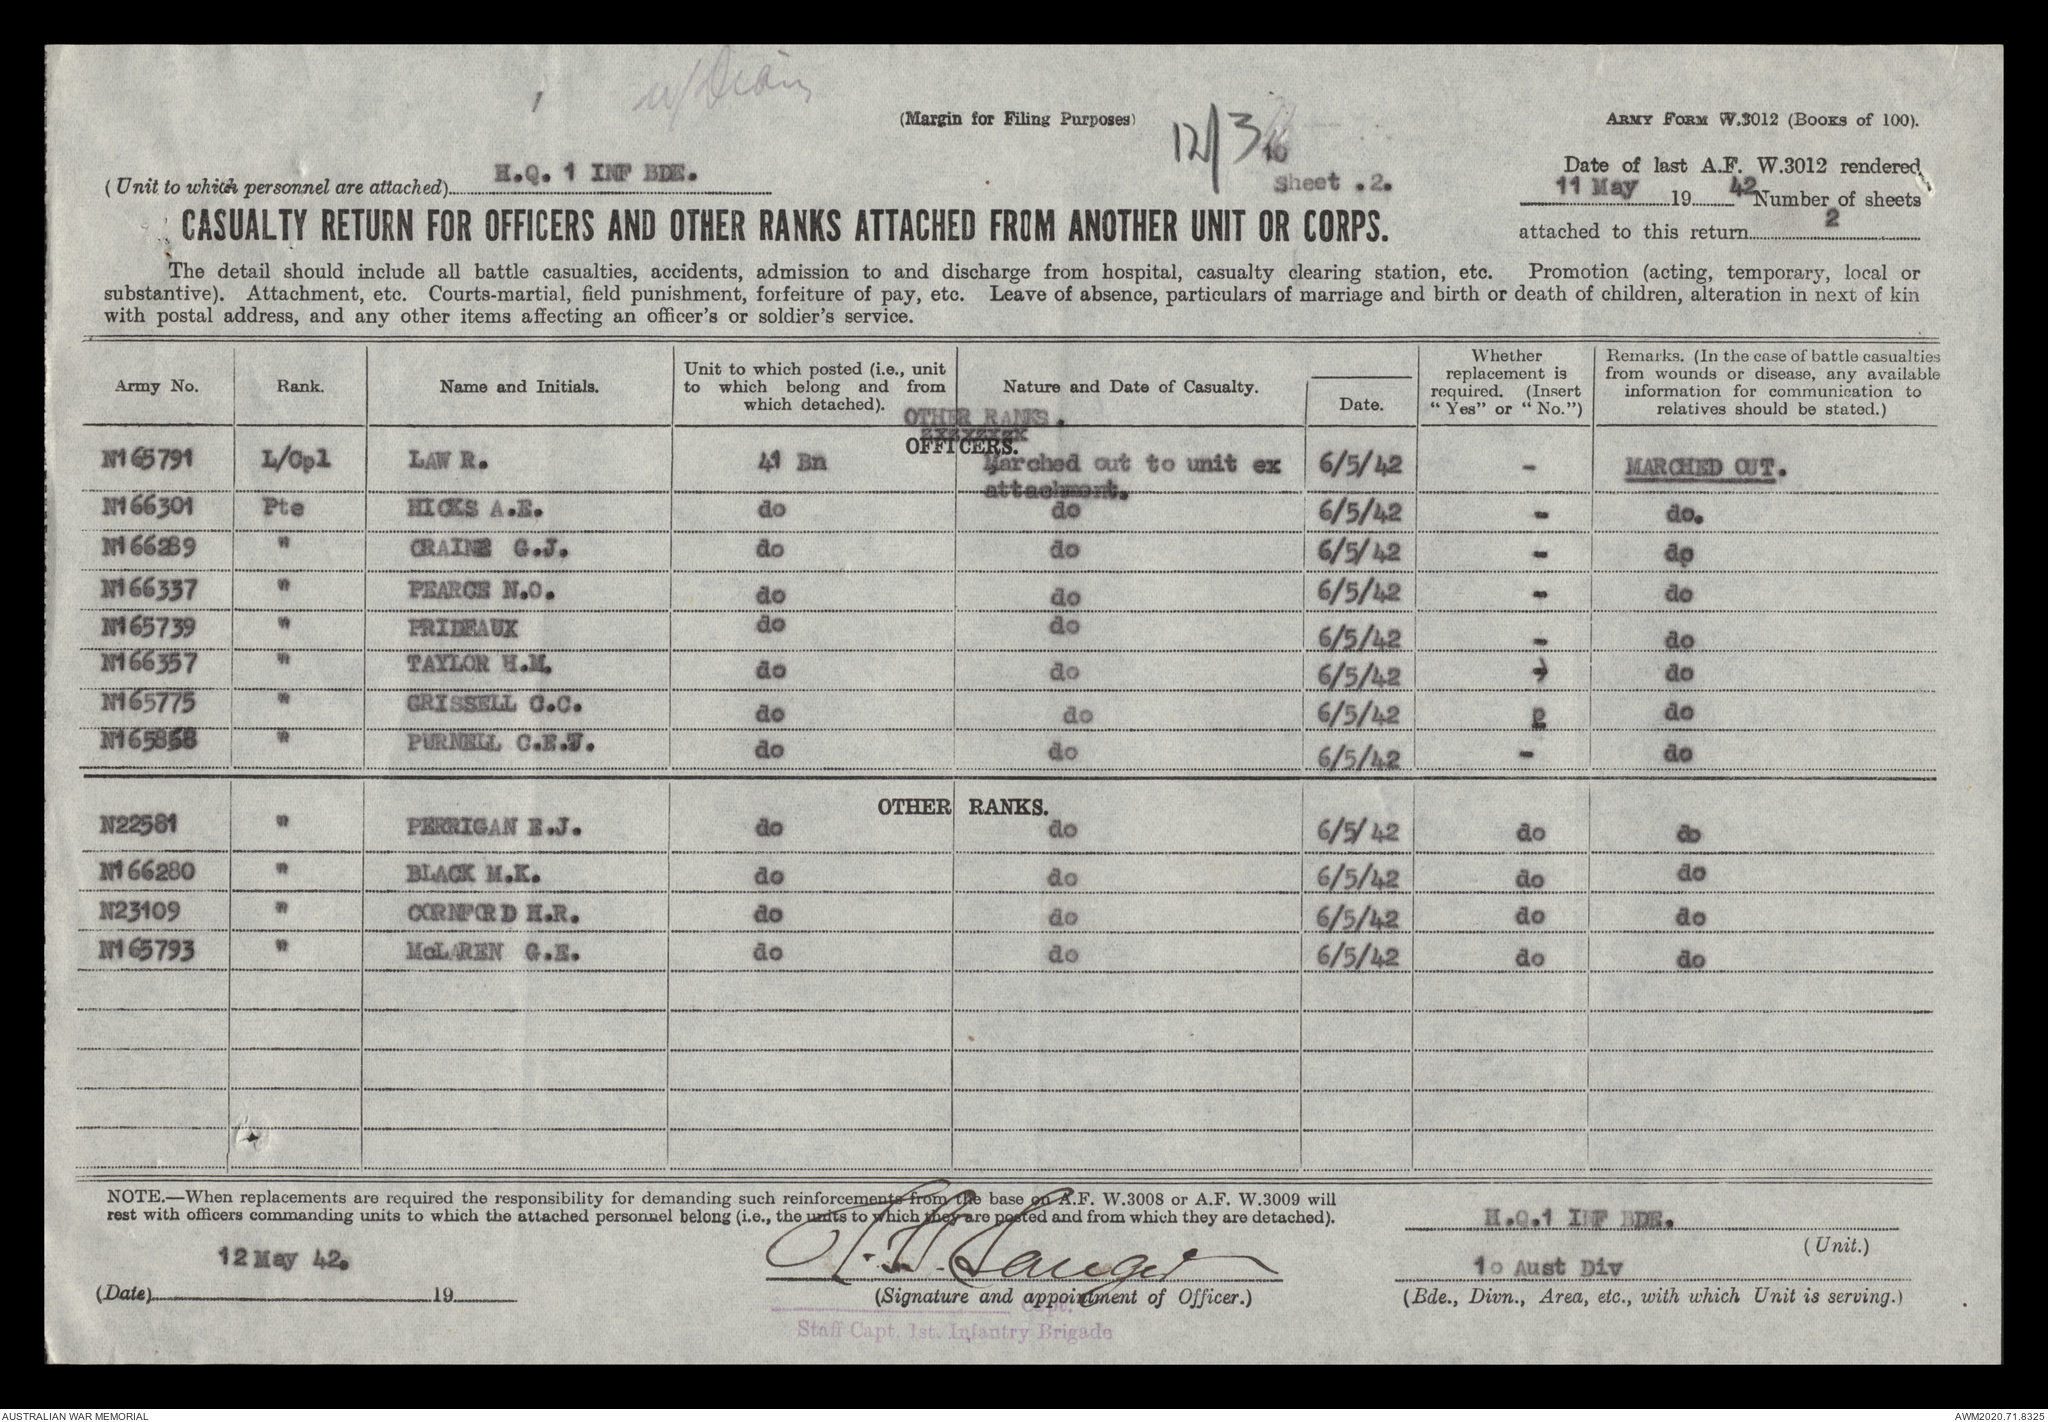 (Margin for Filing Purposes)
12/3
ARMY FORM W.3012 (BOOKS OF 100).
(Unit to which personnel are attached) H.Q. 1 INF BDE.
Sheet .2.
Date of last A.F. W.3012 rendered
11 May 19 42 Number of sheets
attached to this return 2
CASUALTY RETURN FOR OFFICERS AND OTHER RANKS ATTACHED FROM ANOTHER UNIT OR CORPS.
The detail should include all battle casualties, accidents, admission to and discharge from hospital, casualty clearing station, etc. Promotion (acting, temporary, local or
substantive). Attachment, etc. Courts-martial, field punishment, forfeiture of pay, etc. Leave of absence, particulars of marriage and birth or death of children, alteration in next of kin
with postal address, and any other items affecting an officer's or soldier's service.
Army No. Rank. Name and Initials. Unit to which posted (i.e., unit to which belong and from which detached). Nature and Date of Casualty. Date. Whether replacement is required. (Insert "Yes" or "No.") Remarks. (In the case of battle casualties from wounds or disease, any available information for communication to relatives should be stated.)
OTHER RANKS.
OFFICERS.
N165791 L/Cpl LAW R. 41 Bn Marched out to unit ex attachment. 6/5/42 - MARCHED OUT.
N166301 Pte HICKS A.E. do do 6/5/42 - do.
N166289 " CRAINE G.J. do do 6/5/42 - do
N166337 " PEARCE N.O. do do 6/5/42 - do
N165739 " PRIDEAUX do do 6/5/42 - do
N166357 " TAYLOR H.M. do do 6/5/42 - do
N165775 " GRISSELL C.C. do do 6/5/42 p do
" PURNELL C.E.J. do do 6/5/42 - do
OTHER RANKS.
N22581 " PERRIGAN E.J. do do 6/5/42 do do
N166280 " BLACK M.K. do do 6/5/42 do do
N23109 " CORNFORD H.R. do do 6/5/42 do do
N165793 " McLAREN G.E. do do 6/5/42 do do
NOTE.—When replacements are required the responsibility for demanding such reinforcements from the base on A.F. W.3008 or A.F. W.3009 will
rest with officers commanding units to which the attached personnel belong (i.e., the units to which they are posted and from which they are detached).
H.Q.1 INF BDE.
(Unit.)
12 May 42.
(Date) 19
(Signature and appointment of Officer.)
10 Aust Div
(Bde., Divn., Area, etc., with which Unit is serving.)
Staff Capt. 1st. Infantry Brigade
AUSTRALIAN WAR MEMORIAL
AWM2020.71.8325